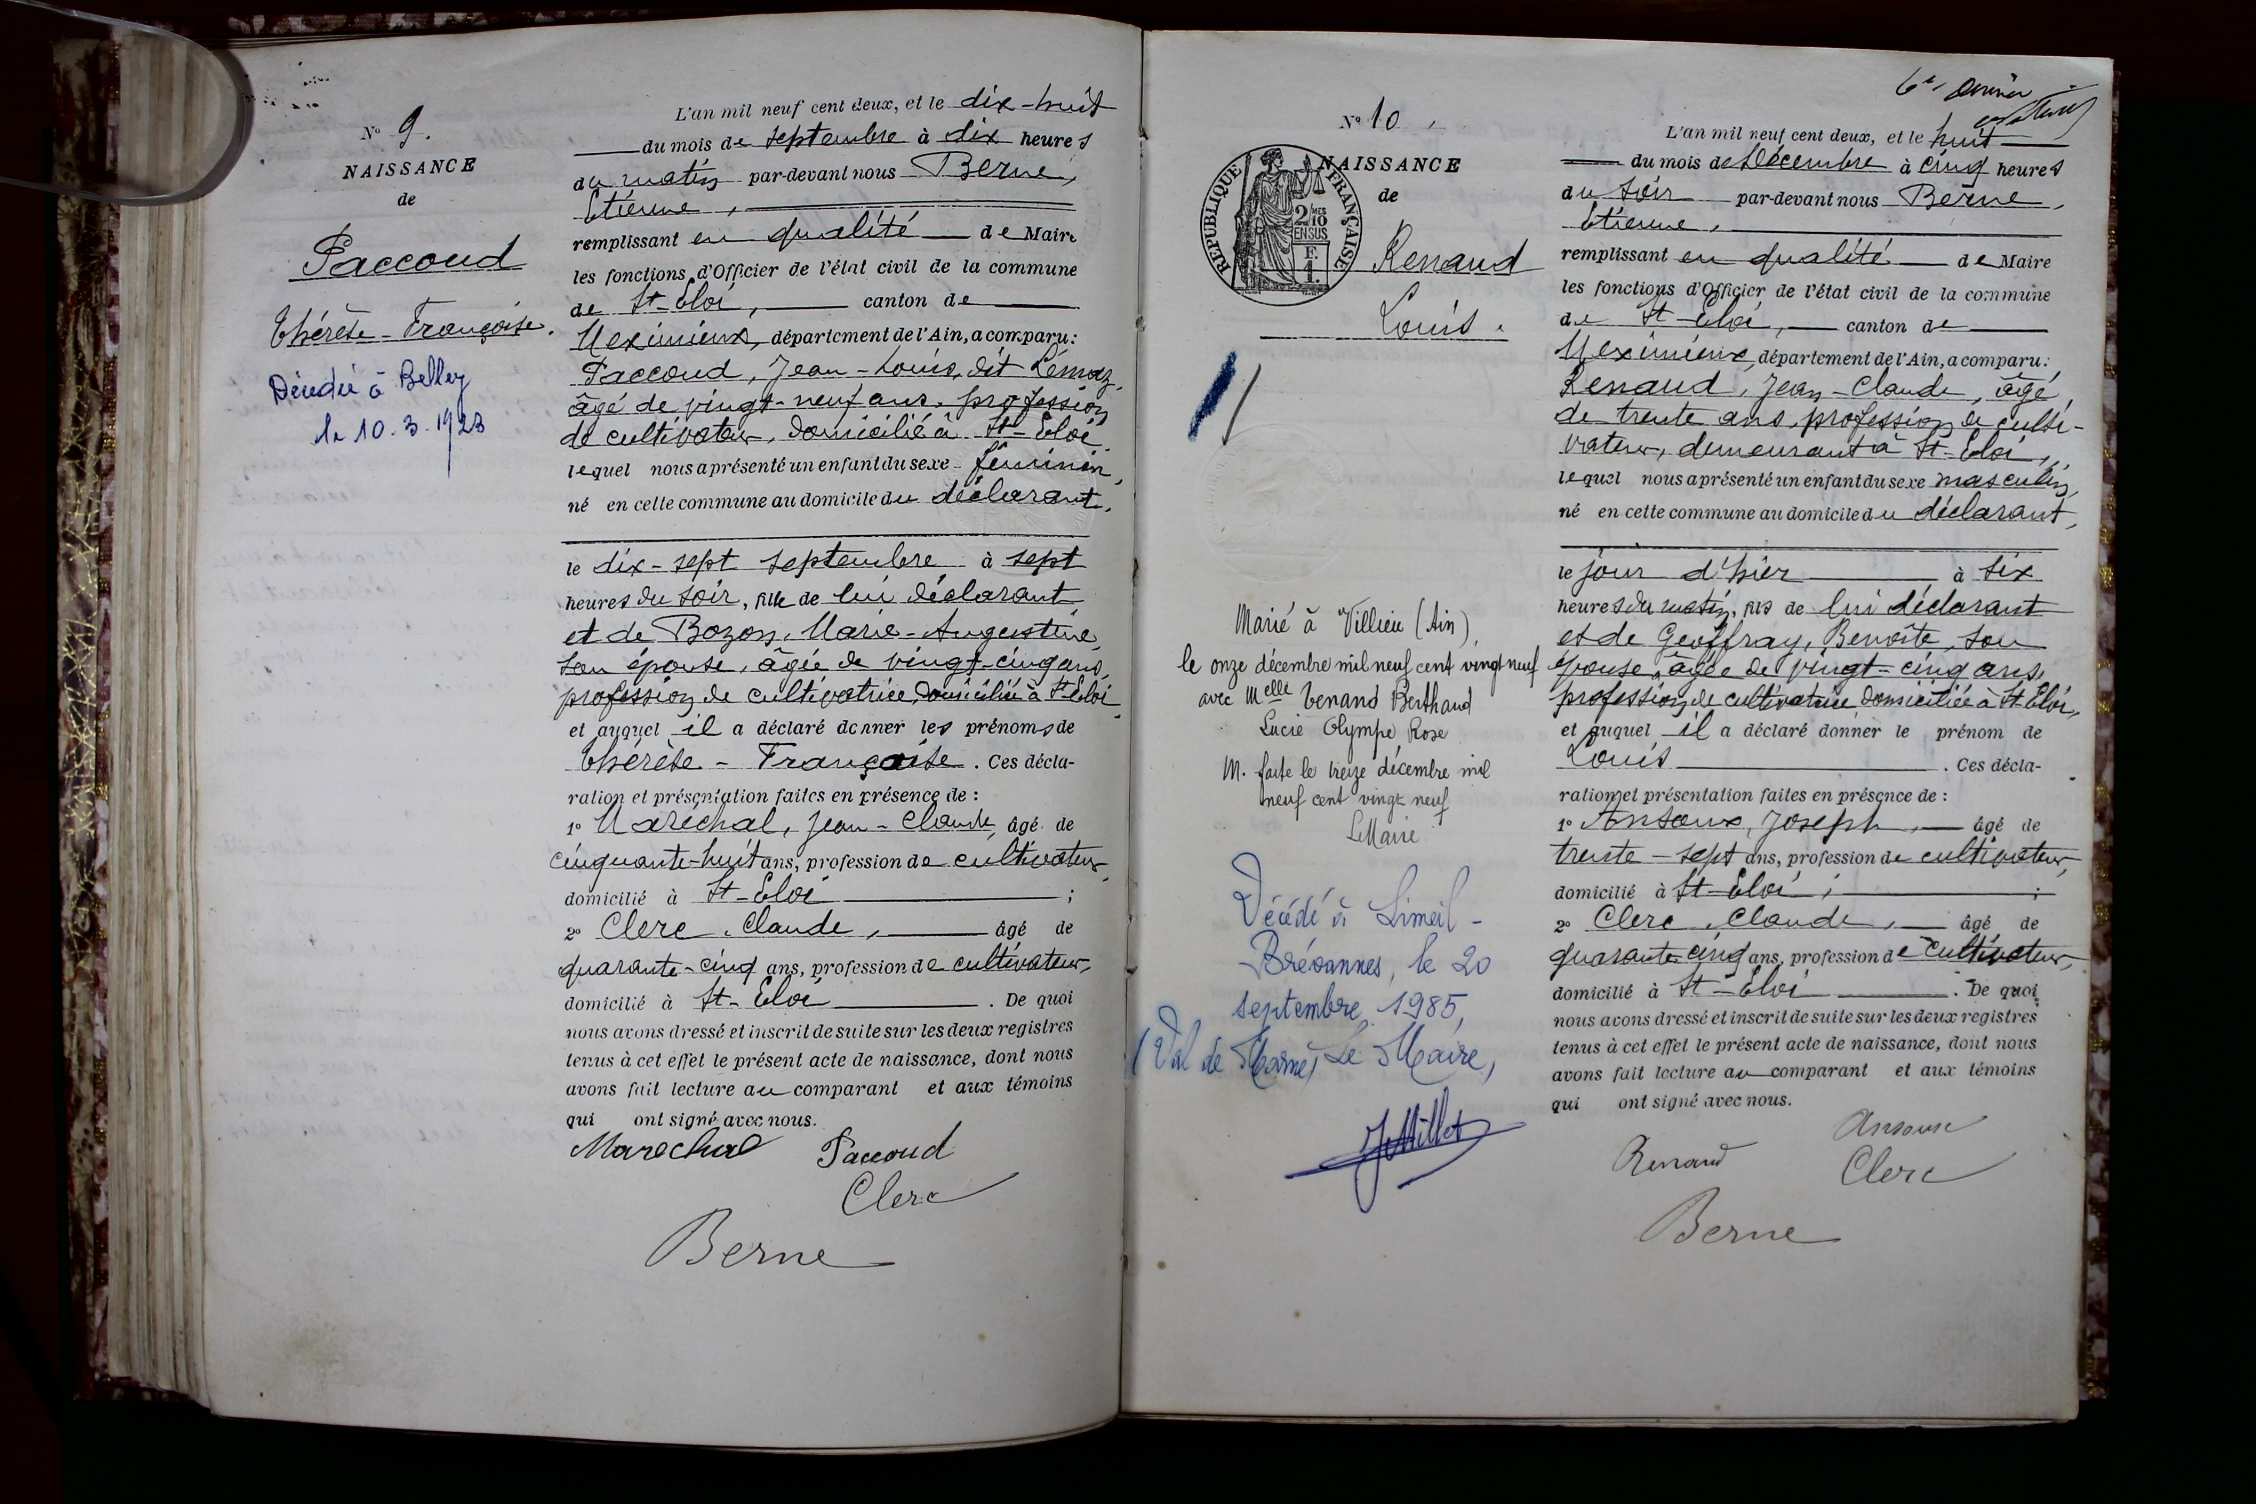 Nº 9.
NAISSANCE
de
Paccoud
Thérèse - Françoise.
Décédée à Belley
le 10.3.1923
L'an mil neuf cent deux, et le dix-huit
du mois de septembre à dix heures
du matin par-devant nous Berne,
Etienne,
remplissant en qualité de Maire
les fonctions d'Officier de l'état civil de la commune
de St-Eloi, canton de
Meximieux, département de l'Ain, a comparu:
Paccoud, Jean-Louis, dit
âgé de vingt-neuf ans, profession
de cultivateur, domicilié à St-Eloi
lequel nous a présenté un enfant du sexe féminin,
né en cette commune au domicile du déclarant,
le dix-sept septembre à sept
heures du soir, fille de lui déclarant
et de Bozon, Marie-Augustine,
son épouse, âgée de vingt-cinq ans,
profession de cultivatrice, domiciliée à St-Eloi
et auquel il a déclaré donner les prénoms de
Thérèse - Françoise. Ces décla-
ration et présentation faites en présence de :
1º Maréchal, Jean-Claude, âgé de
cinquante-huit ans, profession de cultivateur,
domicilié à St-Eloi ;
2º Clerc, Claude, âgé de
quarante-cinq ans, profession de cultivateur,
domicilié à St-Eloi. De quoi
nous avons dressé et inscrit de suite sur les deux registres
tenus à cet effet le présent acte de naissance, dont nous
avons fait lecture au comparant et aux témoins
qui ont signé avec nous.
Marechal Paccoud
Clerc
Berne
Nº 10
NAISSANCE
de
RÉPUBLIQUE FRANÇAISE
2/10 MES
EN SUS
F.
1.
Renaud
Louis.
Marié à Villieu (Ain),
le onze décembre mil neuf cent vingt neuf
avec Melle Tenand Berthaud
Lucie Olympe Rose
M. faite le treize décembre mil
neuf cent vingt neuf
Le Maire
Décédé à Limeil-
Brévannes, le 20
septembre 1985,
(Val de Marne) Le Maire,
JMillet
6e dernier
L'an mil neuf cent deux, et le huit
du mois de Décembre à cinq heures
du soir par-devant nous Berne,
Etienne,
remplissant en qualité de Maire
les fonctions d'Officier de l'état civil de la commune
de St-Eloi, canton de
Meximieux, département de l'Ain, a comparu:
Renaud, Jean-Claude, âgé
de trente ans, profession de culti-
vateur, demeurant à St-Eloi,
lequel nous a présenté un enfant du sexe masculin,
né en cette commune au domicile du déclarant,
le jour d'hier à six
heures du matin, fils de lui déclarant
et de Geoffray, Benoîte, son
épouse, âgée de vingt-cinq ans,
profession de cultivatrice domiciliée à St Eloi,
et auquel il a déclaré donner le prénom de
Louis. Ces décla-
ration et présentation faites en présence de :
1º Ansoux, Joseph, âgé de
trente-sept ans, profession de cultivateur,
domicilié à St-Eloi ;
2º Clerc, Claude, âgé de
quarante-cinq ans, profession de cultivateur,
domicilié à St-Eloi. De quoi
nous avons dressé et inscrit de suite sur les deux registres
tenus à cet effet le présent acte de naissance, dont nous
avons fait lecture au comparant et aux témoins
qui ont signé avec nous.
Ansoux
Renaud Clerc
Berne